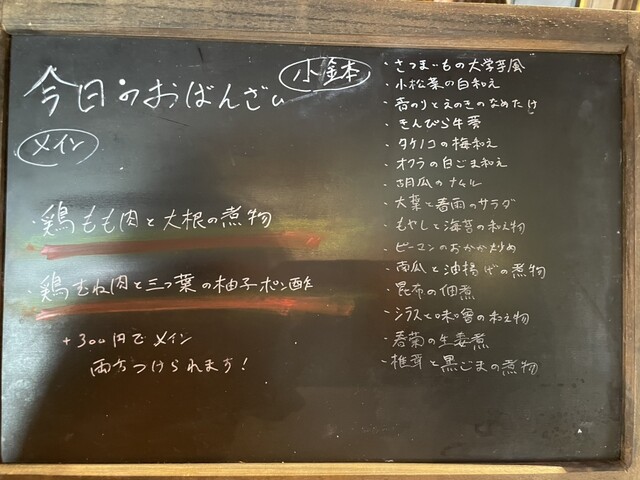 今日のおばんざい
メイン
・鶏もも肉と大根の煮物
・鶏むね肉と三つ葉の柚子ポン酢
+300円でメイン
両方つけられます!
小鉢
・さつまいもの大学芋風
・小松菜の白和え
・青のりとえのきのなめたけ
・きんぴら牛蒡
・タケノコの梅和え
・オクラの白ごま和え
・胡瓜のナムル
・大葉と春雨のサラダ
・もやしと海苔の和え物
・ピーマンのおかか炒め
・南瓜と油揚げの煮物
・昆布の佃煮
・シラスと味噌の和え物
・春菊の生姜煮
・椎茸と黒ごまの煮物